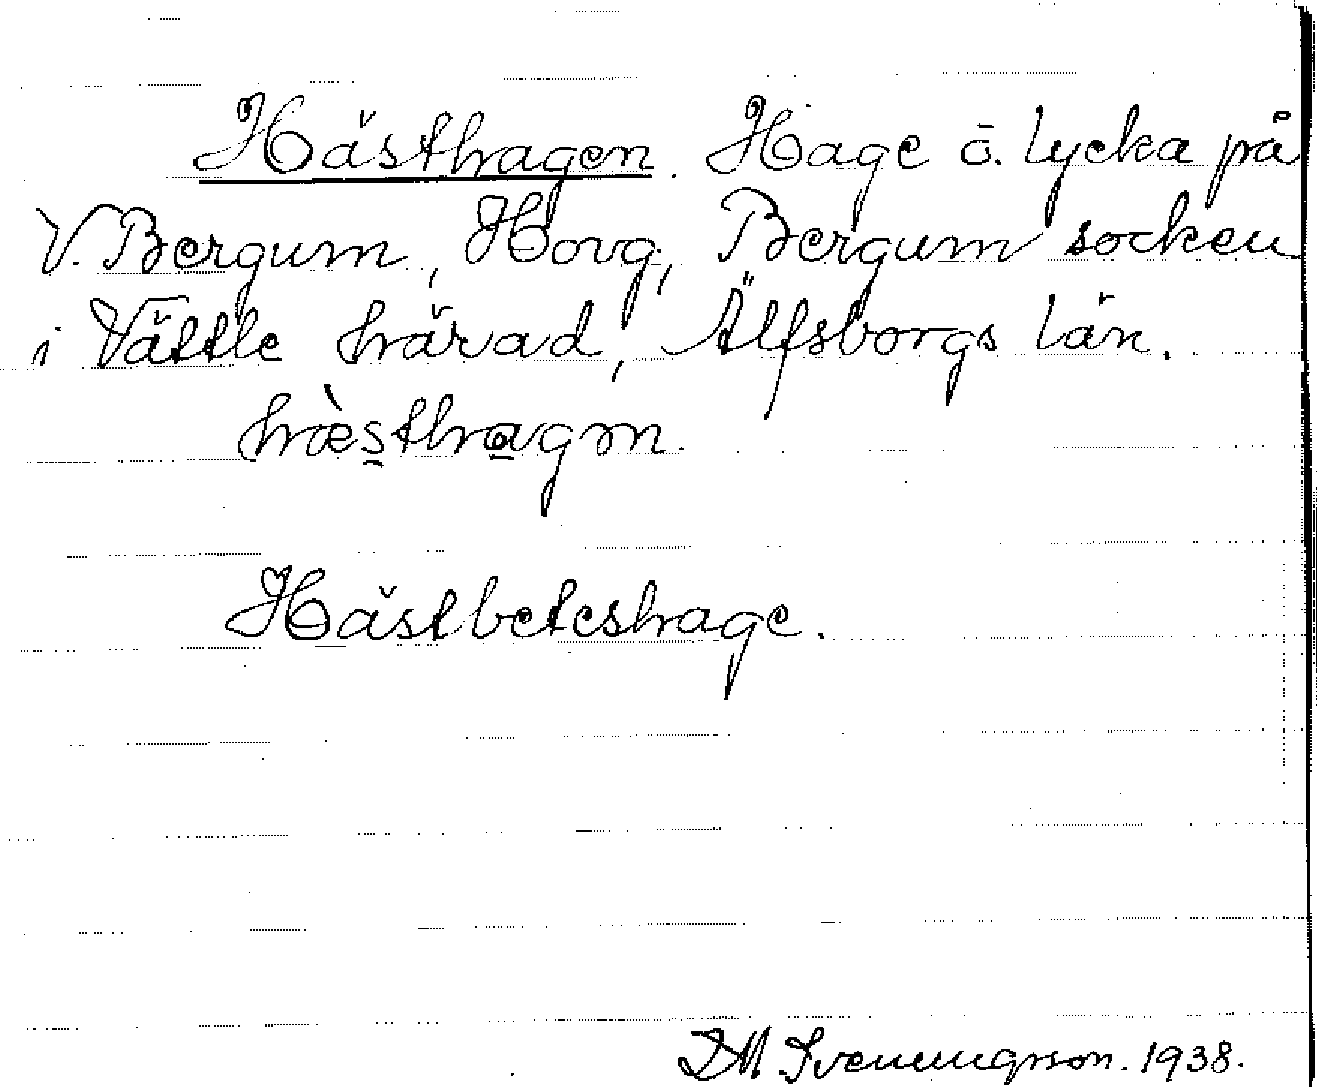 Hästhagen. Hage ō. lycka på
V. Bergum, Hovg, Bergum socken
i Vättle härad, Älfsborgs län.
hæ̀sthagən.
Hästbeteshage.
DM. Svenningsson. 1938.